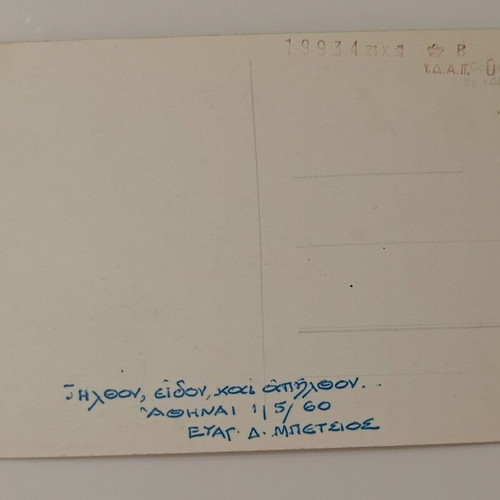 19934 23 X
B
Υ.Δ.Α.Π. 0
Ἦλθον, εἶδον, καὶ ἀπῆλθον..
ἈΘΗΝΑΙ 1/5/60
ΕΥΑΓ. Δ. ΜΠΕΤΣΙΟΣ